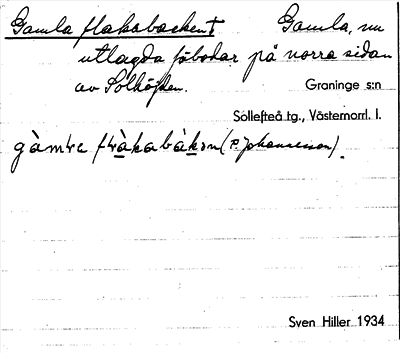 Gamla flakabacken† Gamla, nu
utlagda fäbodar på norra sidan
av Solhöjden.
Graninge s:n
Sollefteå tg., Västernorrl. l.
(P. Johansson).
Sven Hiller 1934